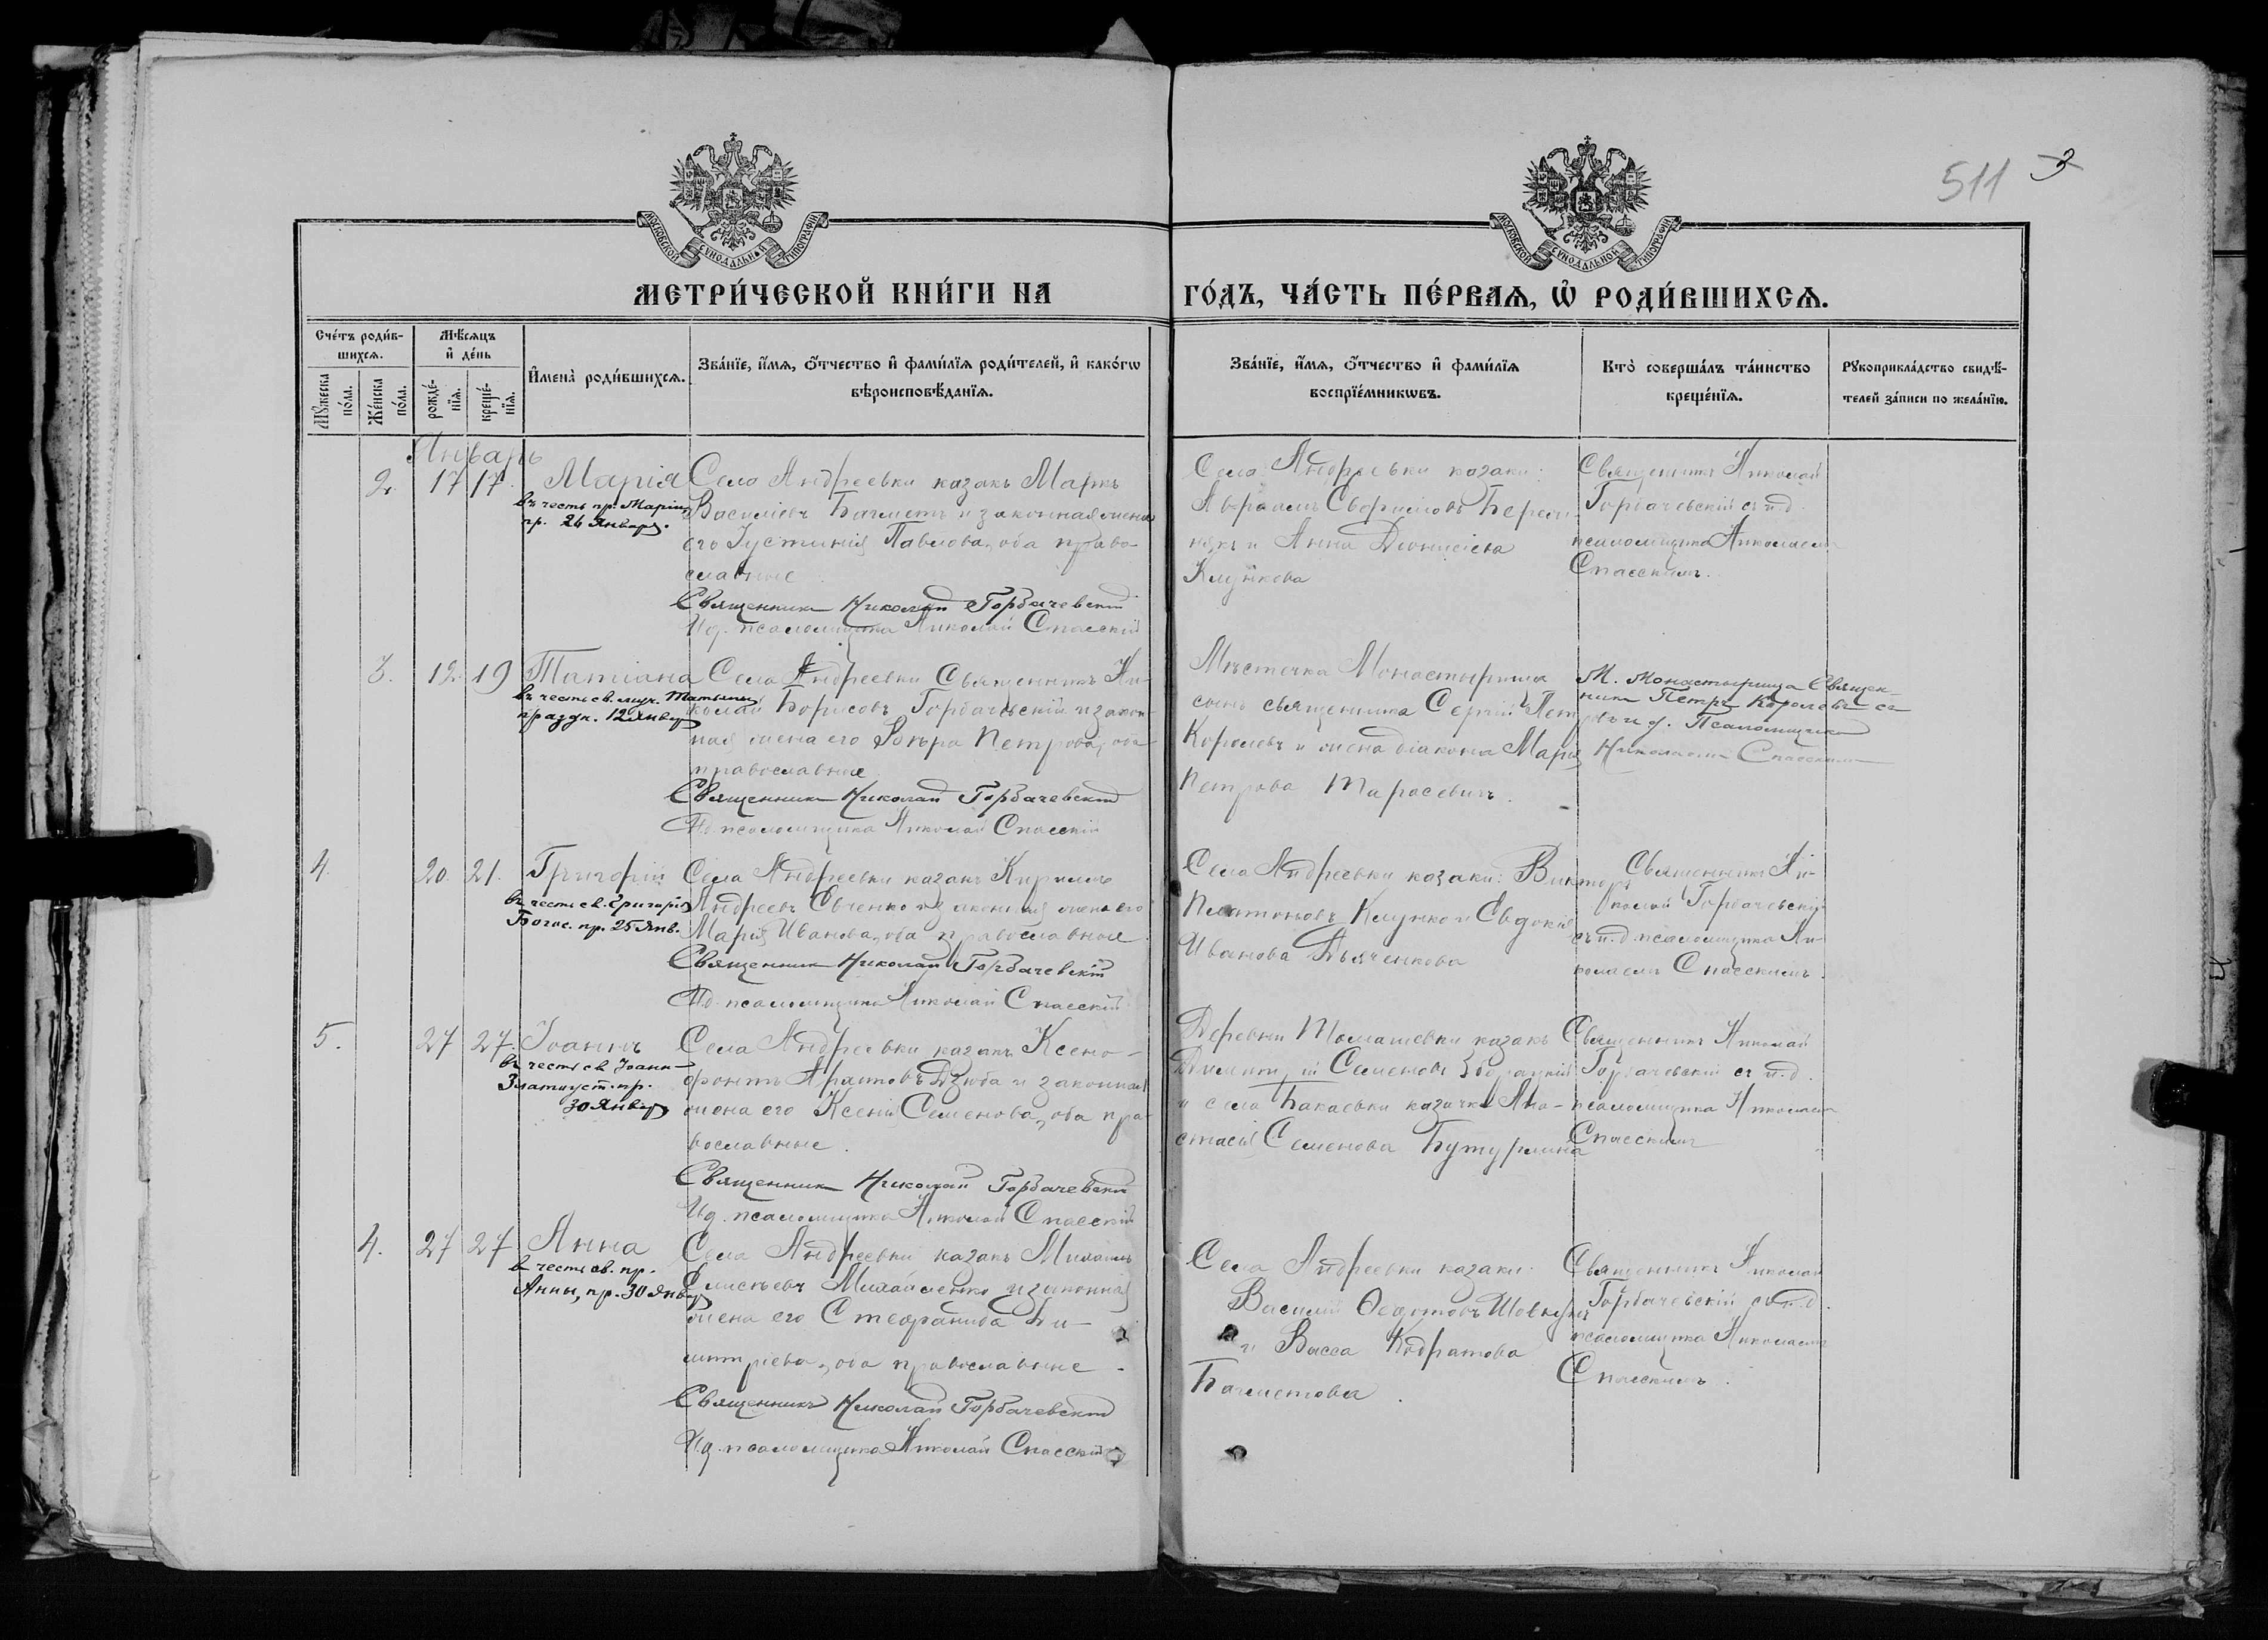 511 3
МОСКОВСКОЙ СУНОДАЛЬНОЙ ТИПОГРАФІИ
МОСКОВСКОЙ СУНОДАЛЬНОЙ ТИПОГРАФІИ
МЕТРИ́ЧЕСКОЙ КНИ́ГИ НА
ГО́ДЪ, ЧА́СТЬ ПЕ́РВАѦ, Ѡ҆ РОДИ́ВШИХСѦ.
Сче́тъ роди́в-
шихсѧ.
Мꙋ́жеска
по́ла.
Же́нска
по́ла.
Мѣ́сѧцъ
и҆ де́нь
рожде́-
нїѧ.
креще́-
нїѧ.
И҆мена̀ роди́вшихсѧ.
Зва́нїе, и҆́мѧ, ѻ҆́тчество и҆ фами́лїѧ роди́телей, и҆ како́гѡ
вѣроисповѣ́данїѧ.
Зва́нїе, и҆́мѧ, ѻ҆́тчество и҆ фами́лїѧ
воспрїе́мникѡвъ.
Кто̀ соверша́лъ та́инство
креще́нїѧ.
Рꙋкоприкла́дство свидѣ́-
телей за́писи по жела́нїю.
Январь
2. 17 17. Марія
въ честь пр. Маріи,
пр. 26 Января.
Села Андреевки казакъ Маркъ
Василіевъ Бачметъ и законная жена
его Іустинія Павлова, оба право-
славные
Священникъ Николай Горбачевскій
И.д. псаломщика Николай Спасскій
Села Андреевки казаки:
Авраамъ Сворилловъ
и Анна Діонисіева
Клункова
Священникъ Николай
Горбачевскій съ и.д.
псаломщика Николаемъ
Спасскимъ.
3. 12. 19 Татіана
въ честь св. муч. Татьяны
праздн. 12 Января
Села Андреевки Священникъ Ни-
колай Борисовъ Горбачевскій и закон-
ная жена его Петрова, оба
православные
Священникъ Николай Горбачевскій
И.д. псаломщика Николай Спасскій
Мѣстечка Монастырища
сынъ священника Сергій Петровъ
Королевъ и жена діакона Марія
Петрова Тарасевичъ.
М. Монастырища Священ-
никъ Петръ Королевъ съ
и д. Псаломщика
Николаемъ Спасскимъ
4. 20. 21. Григорій
въ честь св. Григорія
Богос. пр. 25 Янв.
Села Андреевки казакъ Кириллъ
Андреевъ Євченко и законная жена его
Марія Иванова, оба православные.
Священникъ Николай Горбачевскій
И.д. псаломщика Николай Спасскій
Села Андреевки казаки: Викторъ
Платоновъ Клунко и Евдокія
Иванова Дьяченкова
Священникъ Ни-
колай Горбачевскій
съ и.д. псаломщика Ни-
колаемъ Спасскимъ.
5. 27 27. Іоаннъ
въ честь св. Іоанн
Златоуст. пр.
30 Января
Села Андреевки казакъ Ксено-
фонтъ Дзюба и законная
жена его Ксенія Семенова, оба пра-
вославные.
Священникъ Николай Горбачевскій
И.д. псаломщика Николай Спасскій
Деревни Томашевки казакъ
Димитрій Семеновъ Зборацкій
и села Бакаевки казачка Ана-
стасія Семенова Бутурлина
Священникъ Николай
Горбачевскій съ и.д.
псаломщика Николаемъ
Спасскимъ
4. 27 27 Анна
въ честь св. пр.
Анны, пр. 30 Янв.
Села Андреевки казакъ Михаилъ
Елисѣевъ Михайленко и законная
жена его Стефанида Ди-
митріева, оба православные.
Священникъ Николай Горбачевскій
И.д. псаломщика Николай Спасскій
Села Андреевки казаки:
Василій Ѳедотовъ Шовкунъ
и Васса Кодратова
Бачметова.
Священникъ Николай
Горбачевскій съ и.д.
псаломщика Николаемъ
Спасскимъ.